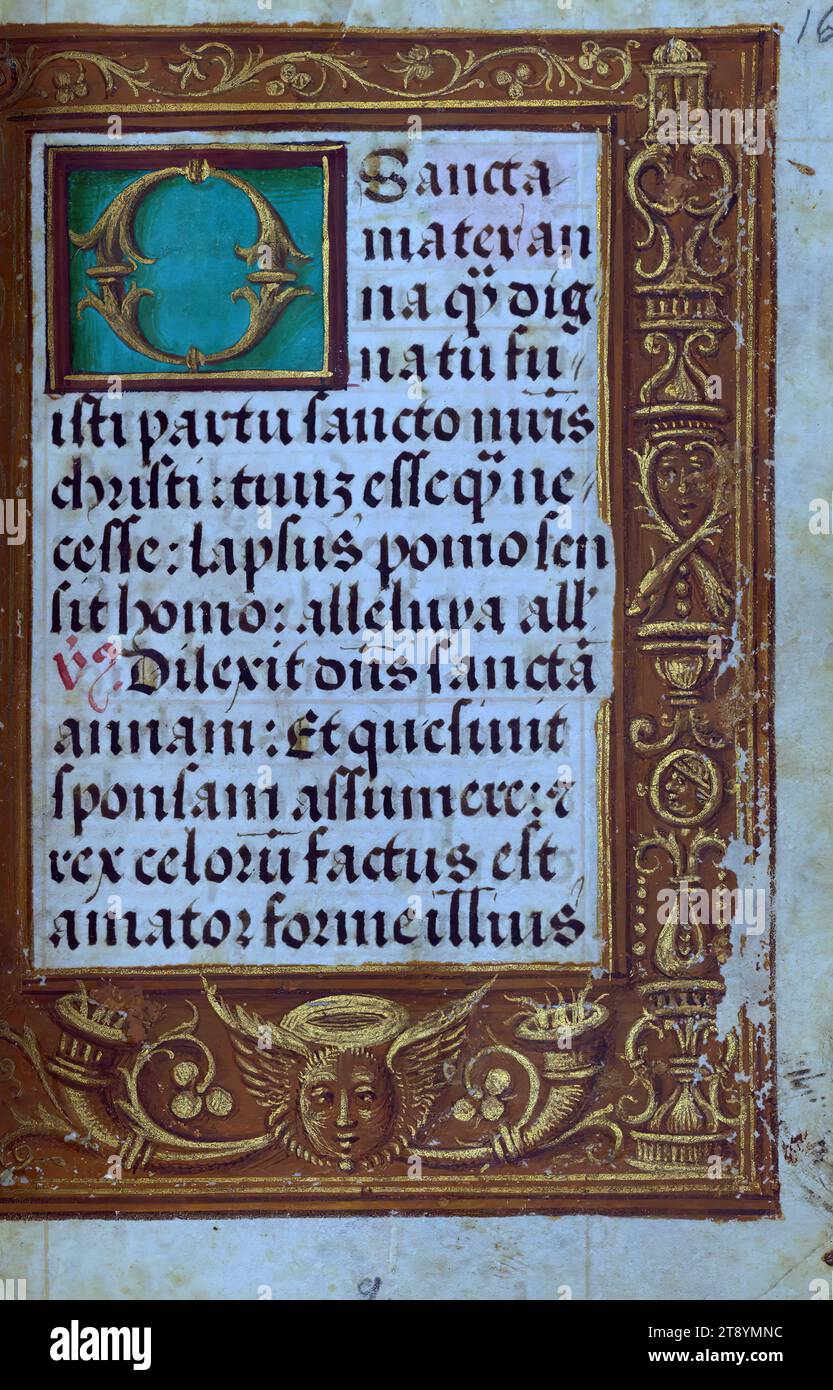 16
O Sancta
mater an
na qͥ dig
natu fu
isti partu sancto nr̄is
christi: tuuʒ esse qͥ ne
cesse: lapsus pomo sen
sit homo: alleluya all
Dilexit dn̄s sanctā
annam: Et quesiuit
sponsam assumere: ⁊
rex celorū factus est
amator forme illius
9
alamy
Image ID: 2T8YMNC
www.alamy.com